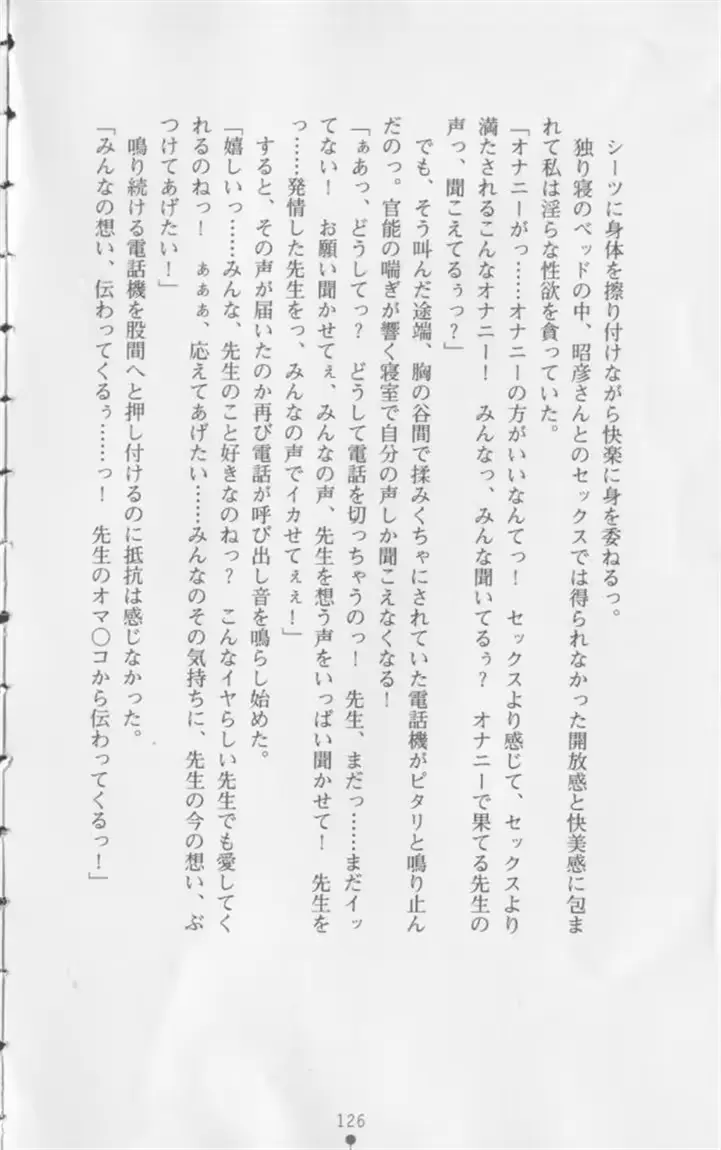 シーツに身体を擦り付けながら快楽に身を委ねるっ。
独り寝のベッドの中、昭彦さんとのセックスでは得られなかった開放感と快美感に包ま
れて私は淫らな性欲を貪っていた。
「オナニーがっ……オナニーの方がいいなんてっ！　セックスより感じて、セックスより
満たされるこんなオナニー！　みんなっ、みんな聞いてるぅ？　オナニーで果てる先生の
声っ、聞こえてるぅっ？」
でも、そう叫んだ途端、胸の谷間で揉みくちゃにされていた電話機がピタリと鳴り止ん
だのっ。官能の喘ぎが響く寝室で自分の声しか聞こえなくなる！
「ぁあっ、どうしてっ？　どうして電話を切っちゃうのっ！　先生、まだっ……まだイッ
てない！　お願い聞かせてぇ、みんなの声、先生を想う声をいっぱい聞かせて！　先生を
っ……発情した先生をっ、みんなの声でイカせてぇぇ！」
すると、その声が届いたのか再び電話が呼び出し音を鳴らし始めた。
「嬉しいっ……みんな、先生のこと好きなのねっ？　こんなイヤらしい先生でも愛してく
れるのねっ！　ぁぁぁ、応えてあげたい……みんなのその気持ちに、先生の今の想い、ぶ
つけてあげたい！」
鳴り続ける電話機を股間へと押し付けるのに抵抗は感じなかった。
「みんなの想い、伝わってくるぅ……っ！　先生のオマ〇コから伝わってくるっ！」
126